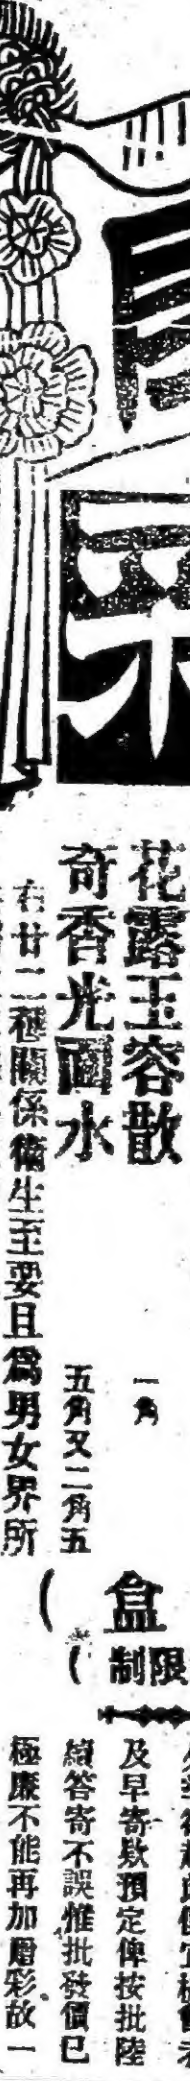 采
花露玉容散 一角
奇香光面水 五角又二角五
右廿二種關係衛生至要且爲男女界所
盒
限制
及早寄欵預定俾按批陸
續答寄不誤惟批發價已
極廉不能再加贈彩故一